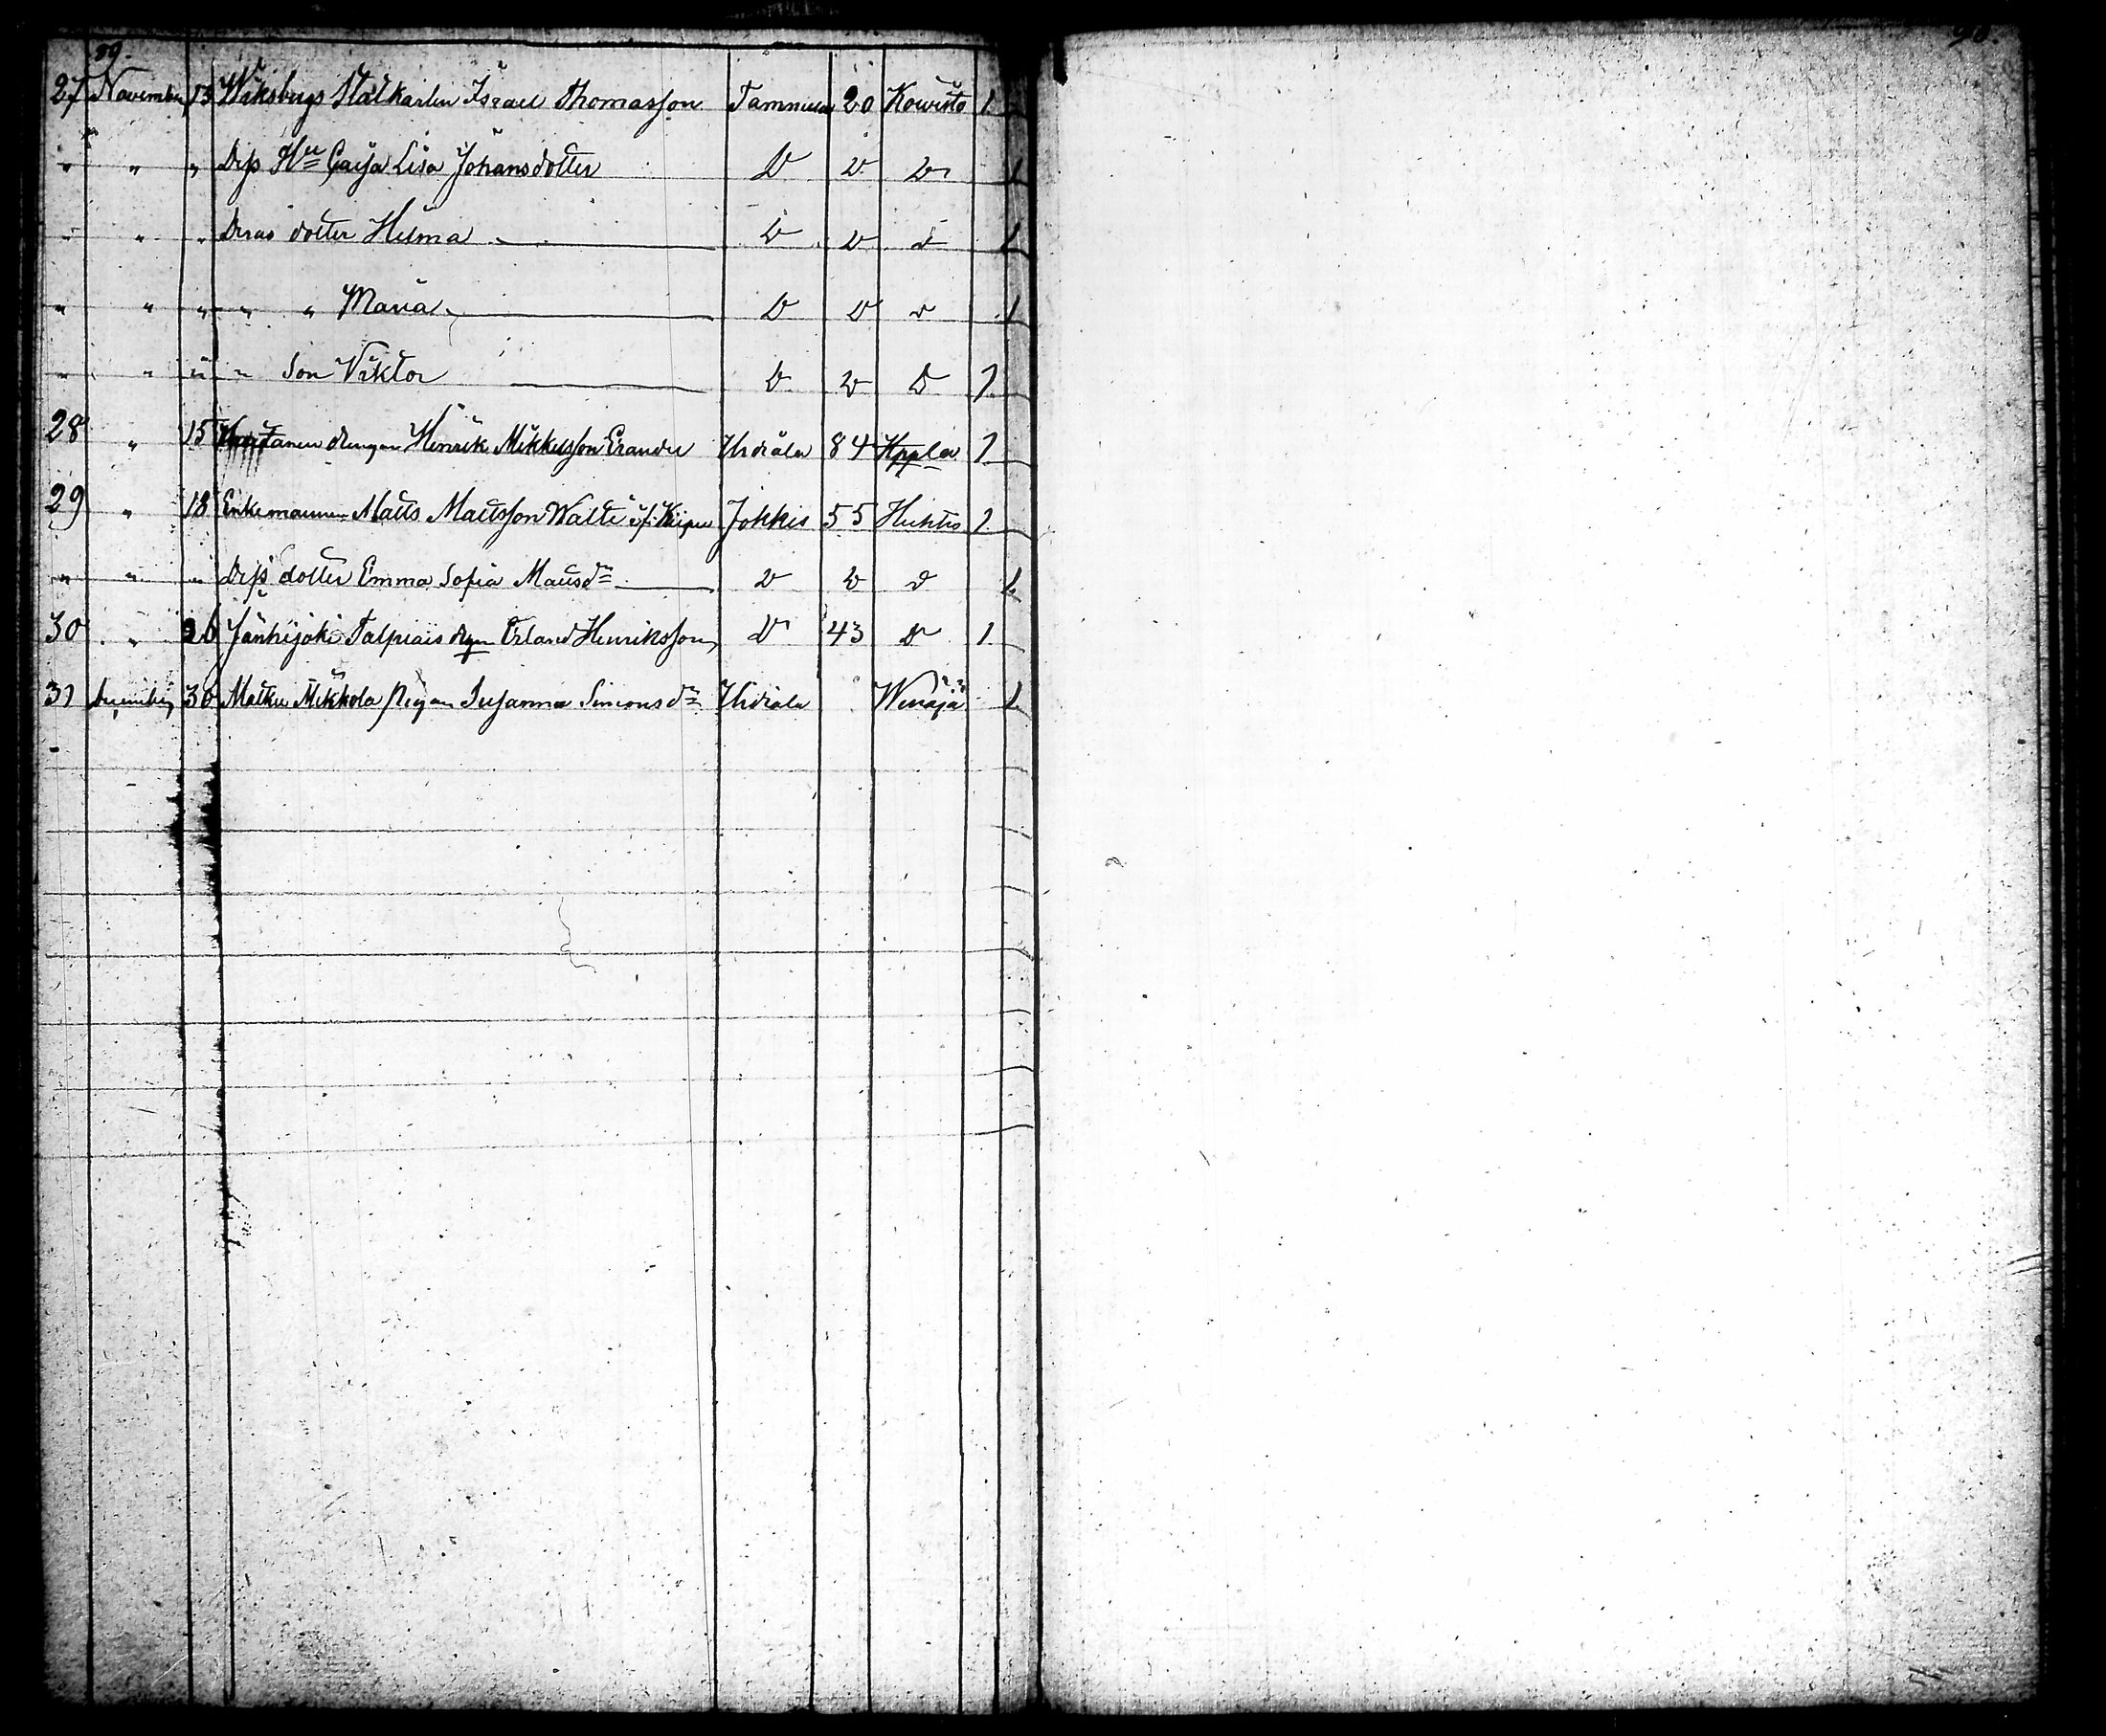 89.
90.
27 November 13 Wiksbergs Statkarlen Israel Thomasson Tammela 20 Kowisto 1.
" " " Deß Hu Cajsa Lisa Johansdotter D D D 1
" " " Deras dotter Hilma D D D 1
" " " " " Maria D D D 1
" " " " Son Viktor D D D 1.
28 " 15 drengen Henrik Mikkelsson Erander Urdiala 84 1.
29 " 18 Enkemannen Matts Mattsson Jokkis 55 Huhtis 1.
" " " Deß dotter Emma Sofia Mattsdr D D D 1.
30 " 26 Jänhijoki Talpiais drgn Erland Henriksson D 43 D 1.
31 December 30 Matku Mikkola pigan Susanna Simonsdr Urdiala 1